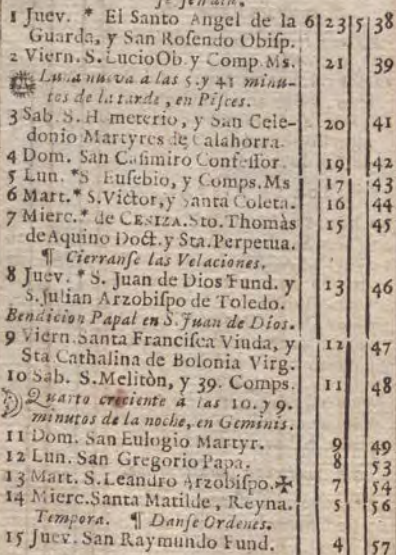 1 Juev. * El Santo Angel de la 6 23 5 38
Guarda, y San Roſendo Obiſp.
2 Viern. S. Lucio Ob. y Comp. Ms. 21 39
Luna nueva a las 5. y 41 minu-
tos de la tarde, en Piſces.
3 Sab. S. H meterio, y San Cele- 20 41
donio Martyres de Calahorra.
4 Dom. San Caſimiro Confeſſor. 19 42
5 Lun. *S Euſebio, y Comps. Ms 17 43
6 Mart. * S. Victor, y Santa Coleta. 16 44
7 Mierc. * de CENIZA. Sto. Thomàs 15 45
de Aquino Doct. y Sta. Perpetua.
¶ Cierranſe las Velaciones.
8 Juev. * S. Juan de Dios Fund. y 13 46
S. Julian Arzobiſpo de Toledo.
Bendicion Papal en S. Juan de Dios.
9 Viern. Santa Franciſca Viuda, y 12 47
Sta Cathalina de Bolonia Virg.
10 Sab. S. Melitòn, y 39. Comps. 11 48
Quarto creciente a las 10. y 9.
minutos de la noche, en Geminis.
11 Dom. San Eulogio Martyr. 9 49
12 Lun. San Gregorio Papa. 8 53
13 Mart. S. Leandro Arzobiſpo. ✠ 7 54
14 Mierc. Santa Matilde, Reyna. 5 56
Tempora. ¶ Danſe Ordenes.
15 Juev. San Raymundo Fund. 4 57